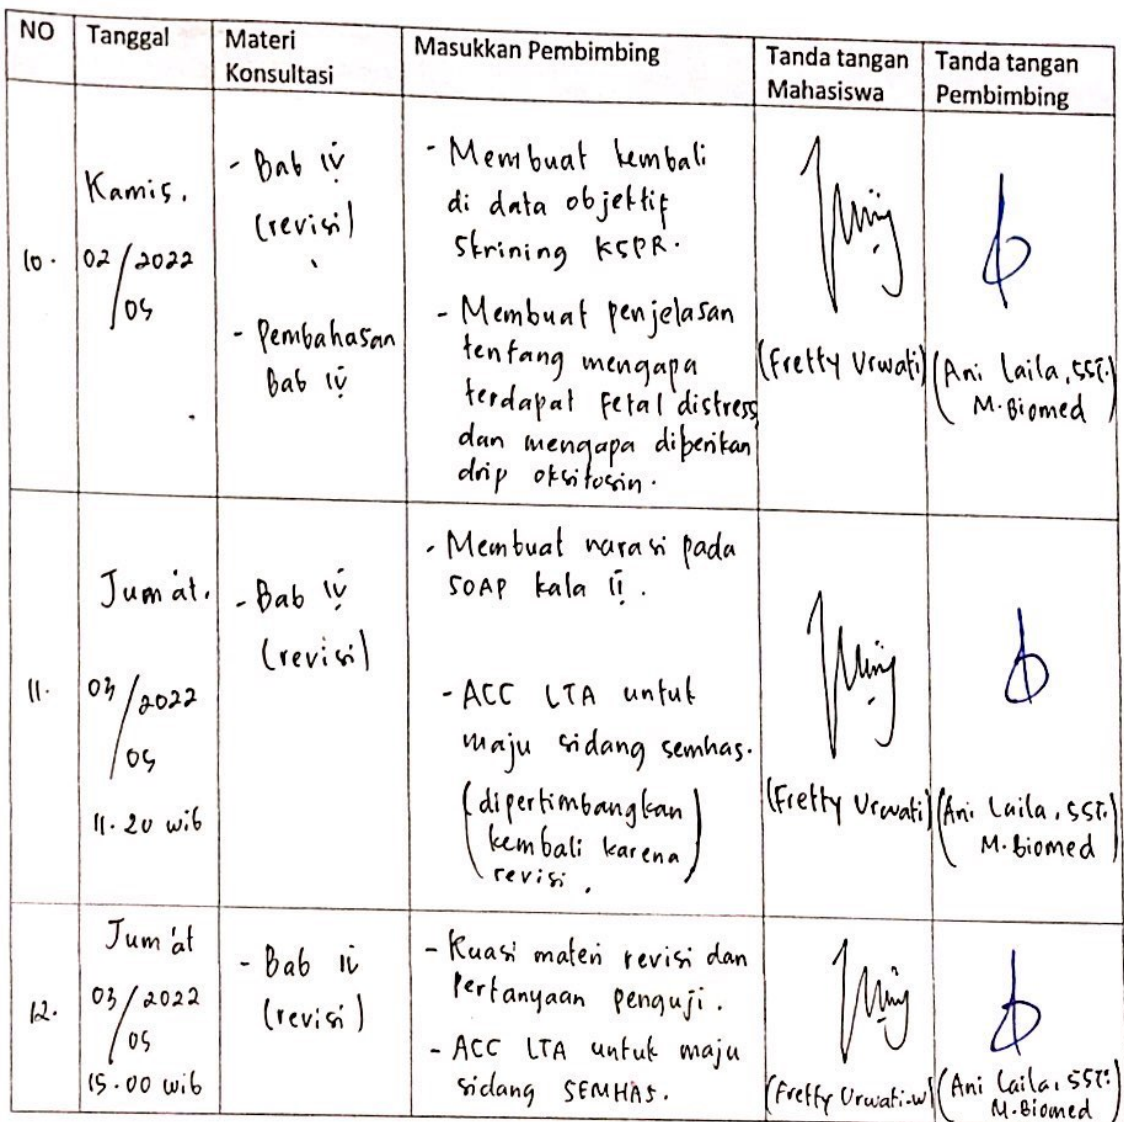 NO
Tanggal
Materi
Konsultasi
Masukkan Pembimbing
Tanda tangan
Mahasiswa
Tanda tangan
Pembimbing
10.
Kamis.
02/2022
/05
- Bab IV
(revisi)
- Pembahasan
Bab IV
- Membuat kembali
di data objektif
Skrining KSPR.
- Membuat penjelasan
tentang mengapa
terdapat Fetal distress
dan mengapa diberikan
drip oksitosin.
(Fretty Urwati)
(Ani Laila, SST.
M.Biomed)
11.
Jum'at.
03/2022
/05
11.20 wib
- Bab IV
(revisi)
- Membuat narasi pada
SOAP kala II.
- ACC LTA untuk
maju sidang semhas.
(dipertimbangkan
kembali karena
revisi.)
(Fretty Urwati)
(Ani Laila, SST.
M.Biomed)
12.
Jum'at
03/2022
/05
15.00 wib
- Bab IV
(revisi)
- Kuasi materi revisi dan
Pertanyaan penguji.
- ACC LTA untuk maju
sidang SEMHAS.
(Fretty Urwati.w)
(Ani Laila, SST.
M.Biomed)